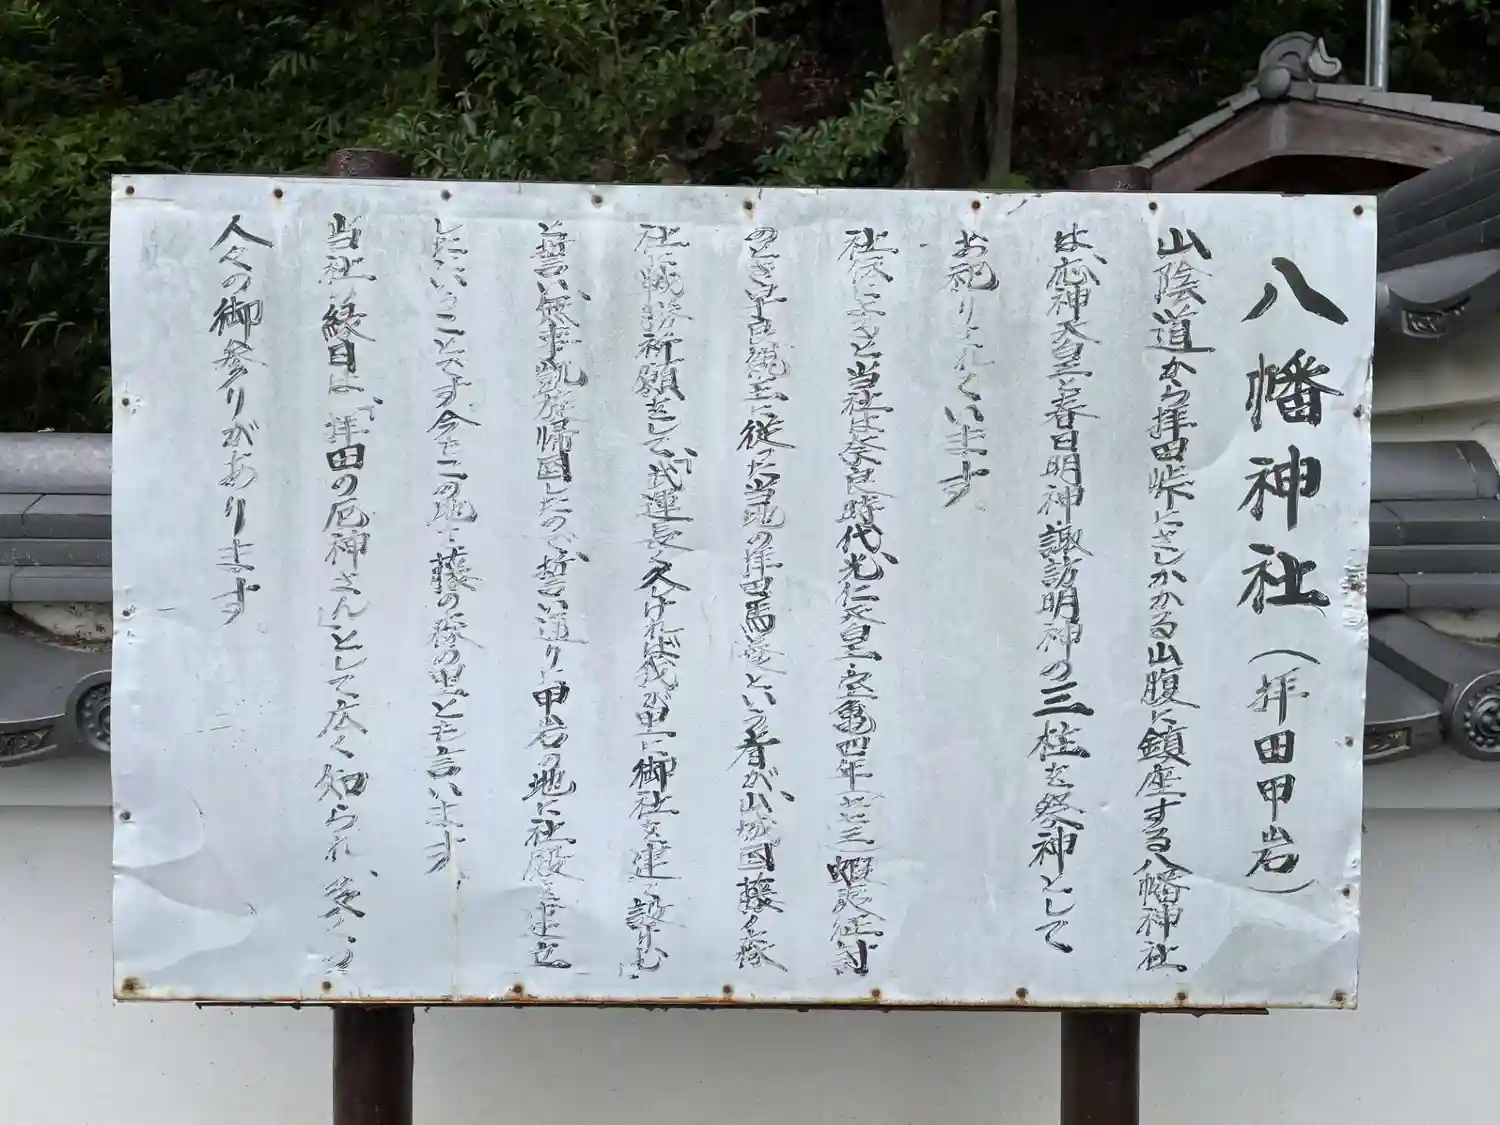 八幡神社（拝田甲岩）
山陰道から拝田峠にさしかかる山腹に鎮座する八幡神社
は、応神天皇と春日明神、諏訪明神の三柱を祭神として
お祀りされています
社伝によると当社は奈良時代、光仁天皇宝亀四年（七七三）蝦夷征討
のとき早良親王に従った当地の拝田馬養という者が、山城国藤ノ森
社に戦勝祈願をして、「武運長久ければ我が里に御社を建て設けむ」
と誓い、無事凱旋帰国したので、誓い通りに甲岩の地に社殿を建立
したということです。今でこの地を藤の森の里とも言います。
当社の縁日は、「拝田の厄神さん」として広く知られ、多くの
人々の御参りがあります